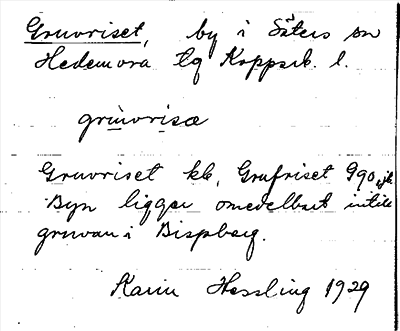 Gruvriset, by i Säters sn
Hedemora tg Kopparb. l.
gruvrisæ
Gruvriset kb, Grufriset G90
Byn ligger omedelbart intill
gruvan i Bispberg.
Karin Hessling 1929